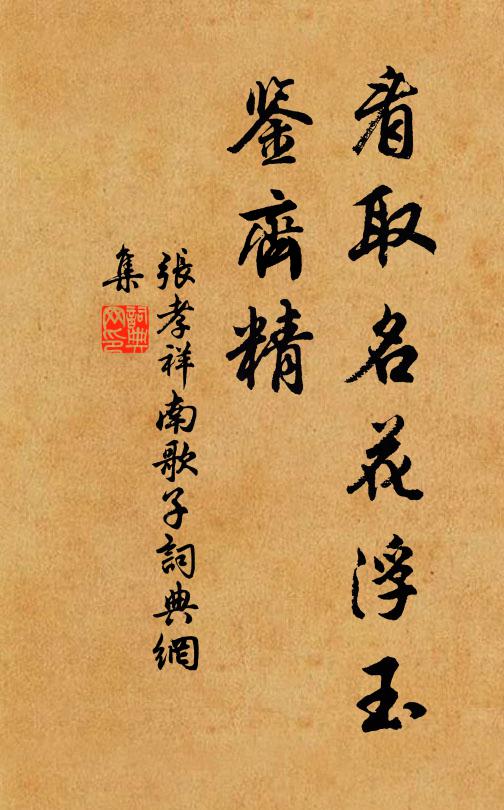 看取名花浮玉
鉴齊精
張孝祥南歌子詞典網
集
詞典
网印